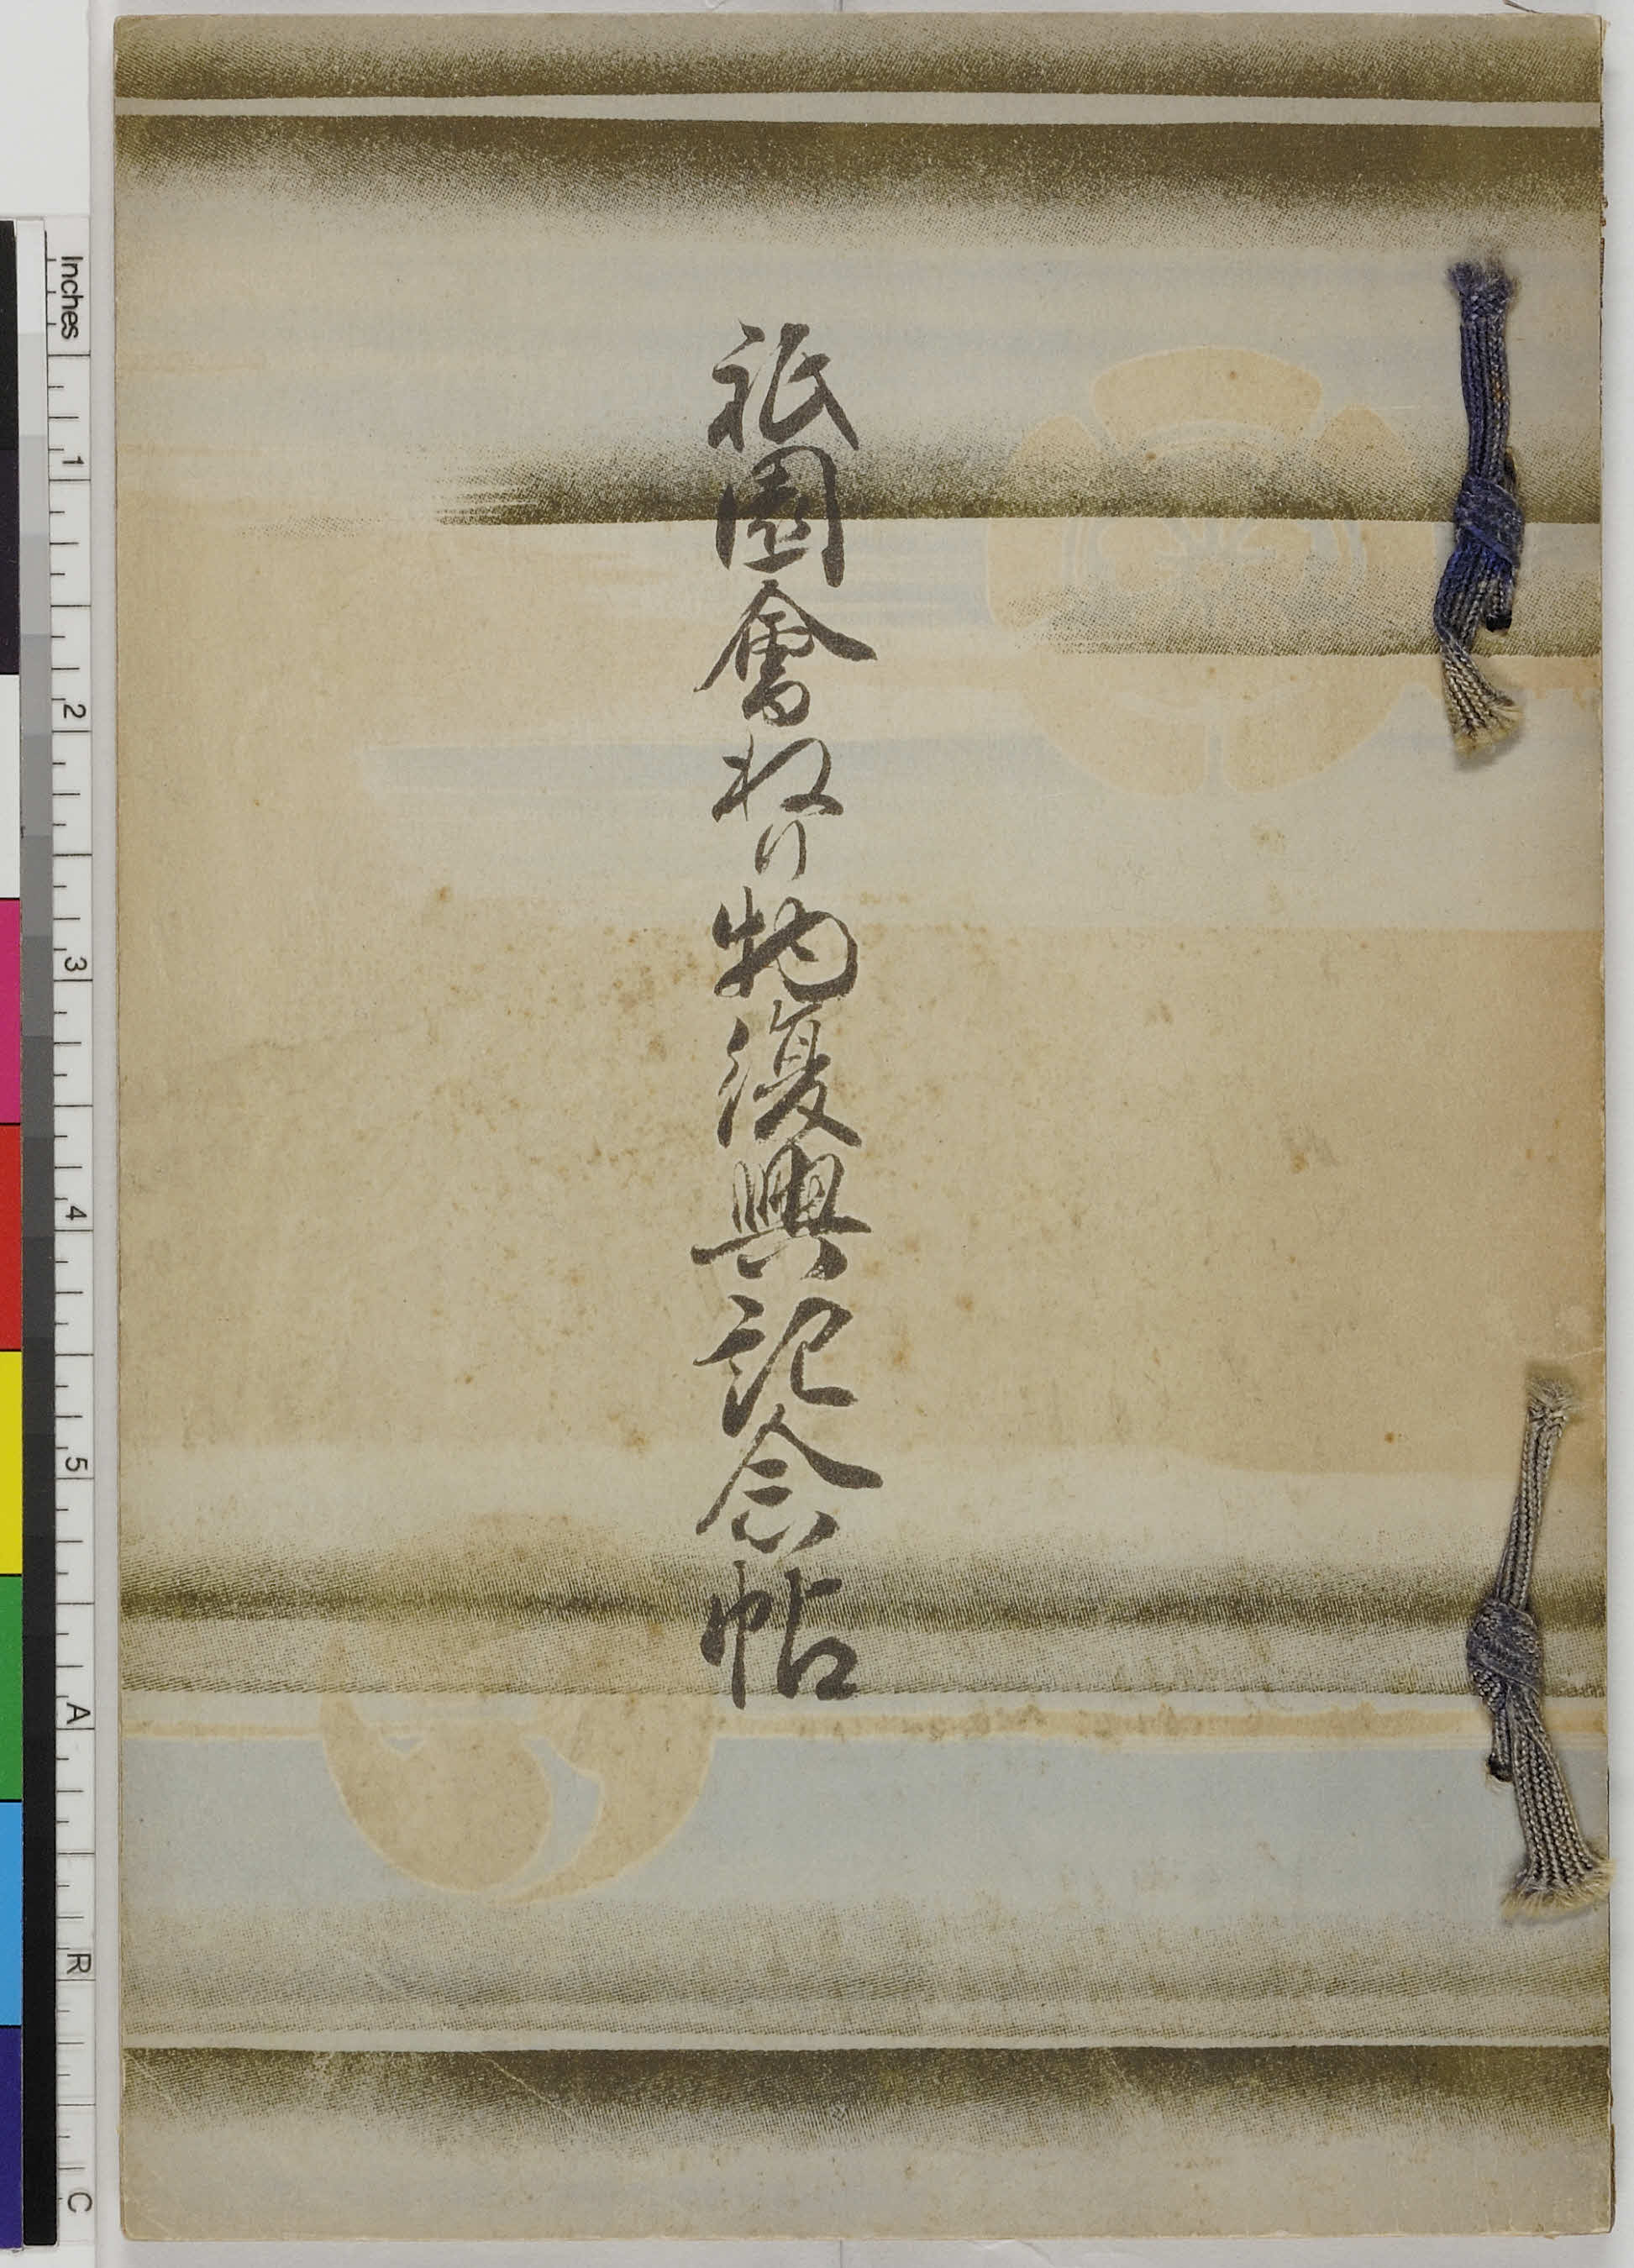 祇園會ねり物復興記念帖
Inches
1
2
3
4
5
A
R
C